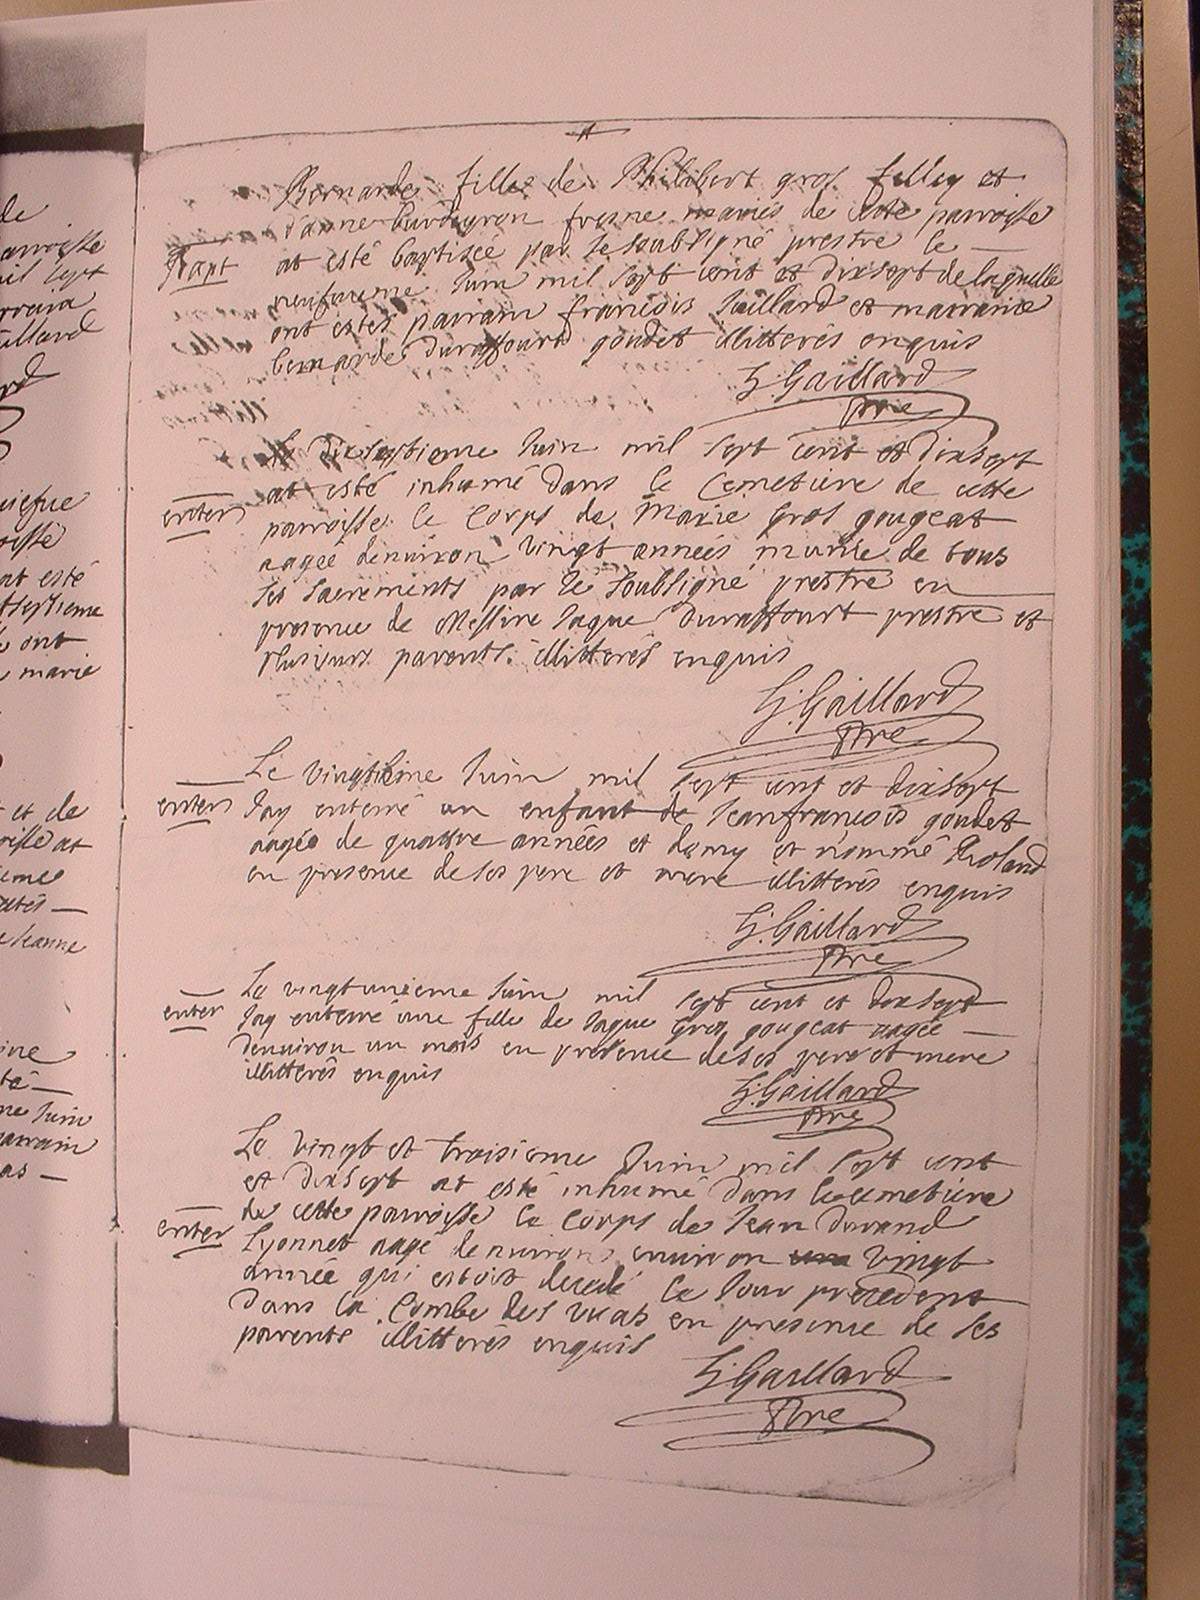 Bernarde fille de Philibert gros filley et
d'anne burdeyron fresne mariés de cete parroisse
Bapt
at esté baptisée par le soubsigné prestre le
neufieme Juin mil sept cent et dixsept de laquelle
ont estés parrain françois Juillard et marraine
bernarde duraffourd goudet illitterés enquis
G. Gaillard
ptre
Le dixseptieme Juin mil sept cent et dixsept
at esté inhumé dans le Cemetiere de cette
enter
parroisse le Corps de Marie Gros gougeat
aagée denuiron vingt années munie de tous
ses sacrements par le soubsigné prestre en
presence de Messire Jaque Duraffourt prestre et
plusieurs parents illitterés enquis
G. Gaillard
ptre
Le vingtième Juin mil sept cent et dixsept
enter
Jay enterré un enfant de Jeanfrancois goudet
aagéé de quattre années et demy et nommé Roland
en presence de ses pere et mere illitterés enquis
G. Gaillard
ptre
Le vingtunieme Juin mil sept cent et dixsept
enter
Jay enterré une fille de Jaque Gros gougeat aagée
denuiron un mois en presence de ses pere et mere
illitterés enquis
G. Gaillard
ptre
Le vingt et troisieme Juin mil sept cent
et dixsept at esté inhumé dans le cemetiere
de cette parroisse le Corps de Jean Durand
enter
Lyonnet aagé denuiron enuiron vingt
année qui estoit decedé le Jour precedent
dans la Combe des en presence de ses
parents illitterés enquis
G. Gaillard
ptre